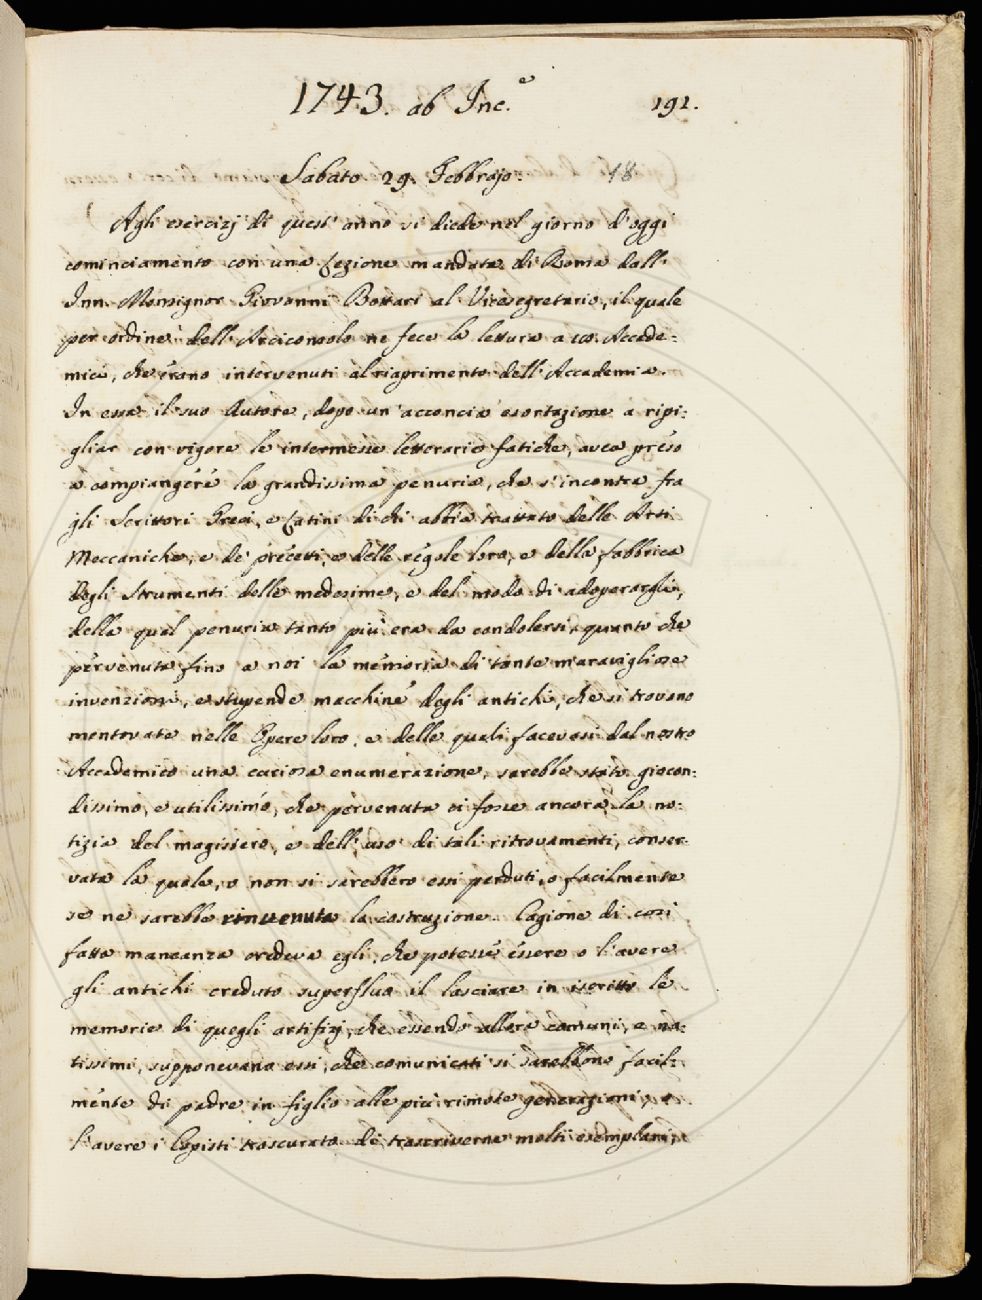 1743. ab Inc.e 191.
Sabato 29. Febbrajo. 18
Agli esercizj di quest' anno si diede nel giorno d'oggi
cominciamento con una Lezione mandata di Roma dall'
Inn. Monsignor Giovanni Bottari al Vicesegretario, il quale
per ordine dell' Arciconsolo ne fece la lettura a 20. Accade=
mici, che erano intervenuti al riaprimento dell' Accademia.
In essa il suo Autore, dopo un' acconcia esortazione a ripi=
gliar con vigore le intermesse letterarie fatiche, avea preso
a compiangere la grandissima penuria, che s'incontra fra
gli Scrittori Greci, e Latini di chi abbia trattato delle Arti
Meccaniche, e de' precetti, e delle regole loro, e della fabbrica
degli Strumenti delle medesime, e del modo di adoperargli,
della qual penuria tanto più era da condolersi, quanto che
pervenuta fino a noi la memoria di tante maravigliose
invenzioni, e stupende macchine degli antichi, che si trovano
mentovate nelle Opere loro, e delle quali facevasi dal nostro
Accademico una curiosa enumerazione, sarebbe stato giocon=
dissimo, e utilissimo, che pervenuta ci fosse ancora la no=
tizia del magistero, e dell' uso di tali ritrovamenti, conser=
vata la quale, o non si sarebbero essi perduti, o facilmente
se ne sarebbe rinvenuta la costruzione. Cagione di così
fatta mancanza credeva egli, che potesse essere o l'avere
gli antichi creduto superfluo il lasciare in iscritto le
memorie di quegli artifizj, che essendo allora comuni, e no=
tissimi, supponevano essi, che comunicati si sarebbono facil=
mente di padre in figlio alle più rimote generazioni, o
l'avere i Copisti trascurato de trascriverne molti esemplari,